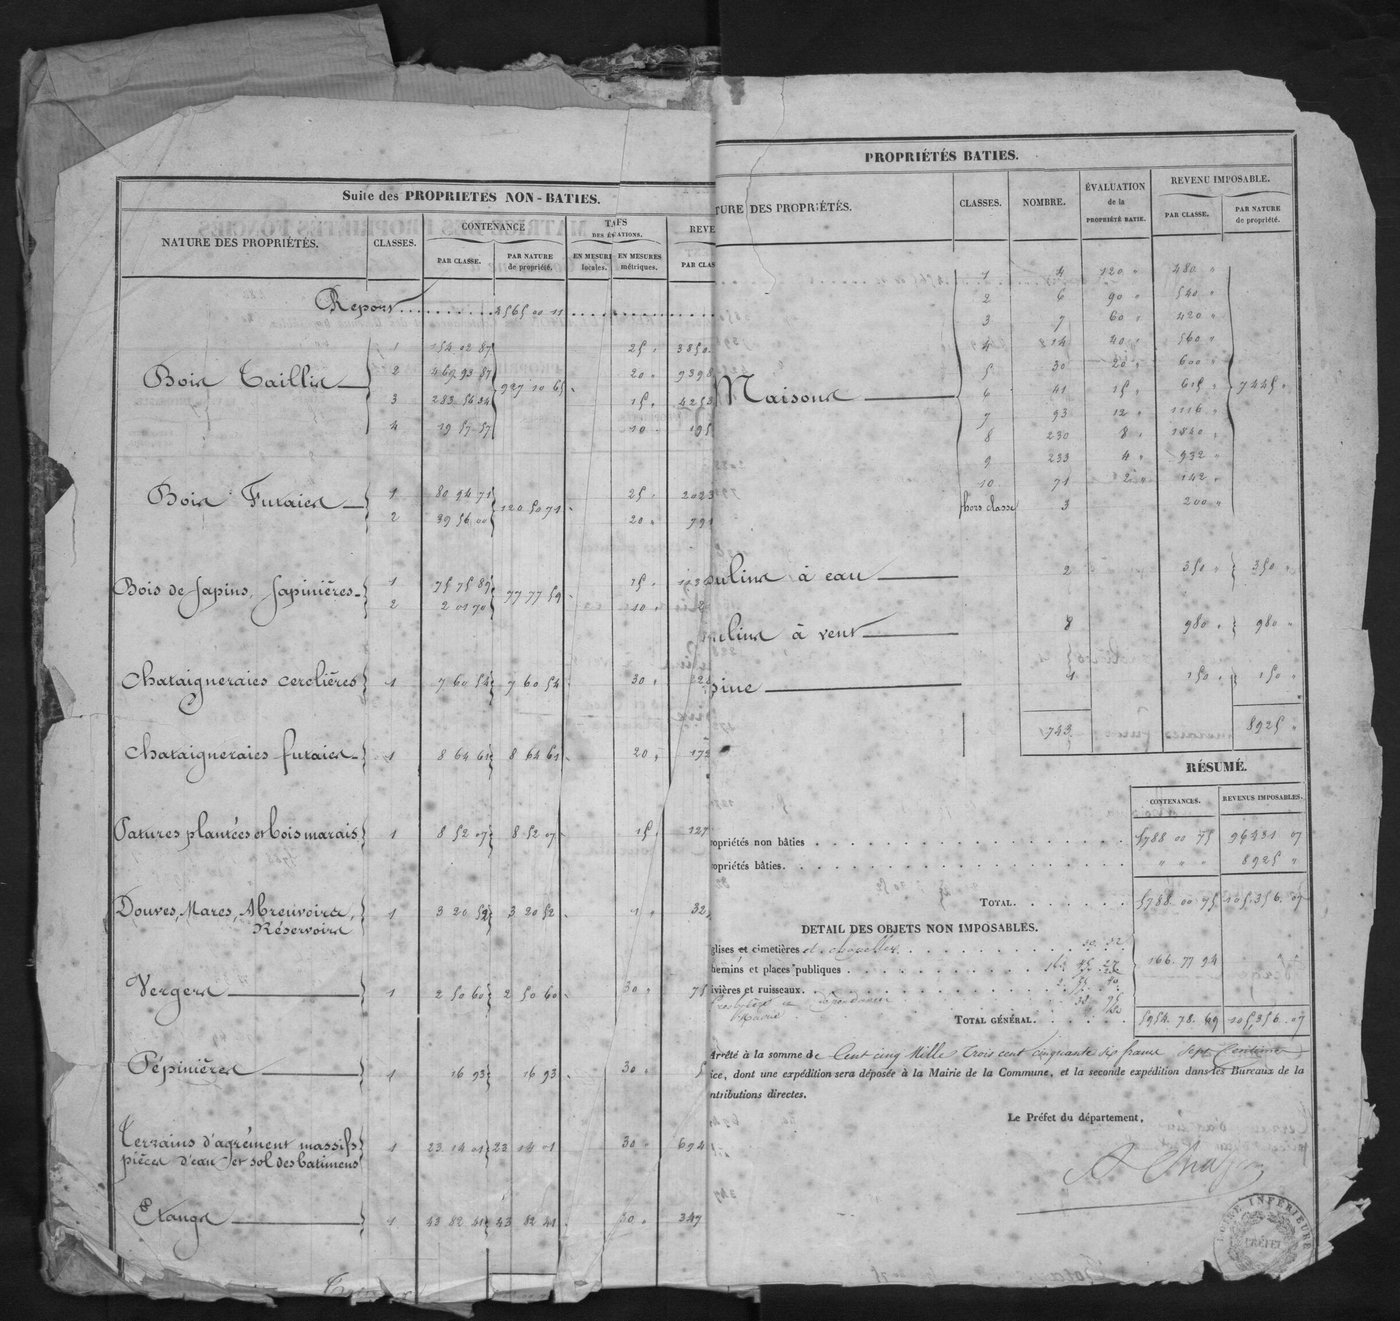 Suite des PROPRIETES NON-BATIES.
NATURE DES PROPRIÉTÉS.
CLASSES.
CONTENANCE
PAR CLASSE.
PAR NATURE
de propriété.
EN MESURES
locales.
EN MESURES
métriques.
PAR CLAS
Report 4565 00 11
Bois Taillis
1 154 02 87 25 " 3850
2 469 93 87 927 10 65 20 " 9398
3 283 56 34 15 " 4253
4 19 57 57 10 " 195
Bois Futaies
1 80 94 71 120 50 71 25 " 2023
2 39 56 00 20 " 791
Bois de Sapins, Sapinières
1 75 75 89 77 77 59 15 "
2 2 01 70 10 "
Chataigneraies cerolières 1 7 60 54 7 60 54 30 " 228
Chataigneraies futaies 1 8 64 61 8 64 61 20 " 172
Patures plantées et bois marais 1 8 52 07 8 52 07 15 " 127
Douves, Mares, Abreuvoirs,
Réservoirs 1 3 20 52 3 20 52 1 " 32
Vergers 1 2 50 60 2 50 60 30 " 75
Pépinières 1 16 93 16 93 30 " 5
Terrains d'agrément massifs
pièces d'eau et sol des batimens 1 23 14 01 23 14 01 30 " 694
Etangs 1 43 82 41 43 82 41 347
PROPRIÉTÉS BATIES.
TURE DES PROPRIÉTÉS.
CLASSES.
NOMBRE.
ÉVALUATION
de la
PROPRIÉTÉ BATIE.
REVENU IMPOSABLE.
PAR CLASSE.
PAR NATURE
de propriété.
Maisons
1 4 120 " 480 "
2 6 90 " 540 "
3 7 60 " 420 "
4 14 40 " 560 "
5 30 20 " 600 "
6 41 15 " 615 " 7445 "
7 93 12 " 1116 "
8 230 8 " 1840 "
9 233 4 " 932 "
10 71 2 " 142 "
hors classe 3 200 "
ulins à eau 2 350 " 350 "
ulins à vent 8 980 " 980 "
sine 1 150 " 150 "
743 8925 "
RÉSUMÉ.
CONTENANCES. REVENUS IMPOSABLES.
opriétés non bâties 5788 00 75 96431 07
opriétés bâties. " " " 8925 "
TOTAL. 5788 00 75 105,356 07
DETAIL DES OBJETS NON IMPOSABLES.
glises et cimetières et chapelles
hemins et places publiques 166 77 94
ivières et ruisseaux.
Presbytère et dépendances
Mairie
TOTAL GÉNÉRAL. 5954 78 69 105,356 07
Arrêté à la somme de Cent cinq Mille Trois cent cinquante six francs sept Centimes
ice, dont une expédition sera déposée à la Mairie de la Commune, et la seconde expédition dans les Bureaux de la
ntributions directes.
Le Préfet du département,
LOIRE INFÉRIEURE
PRÉFET